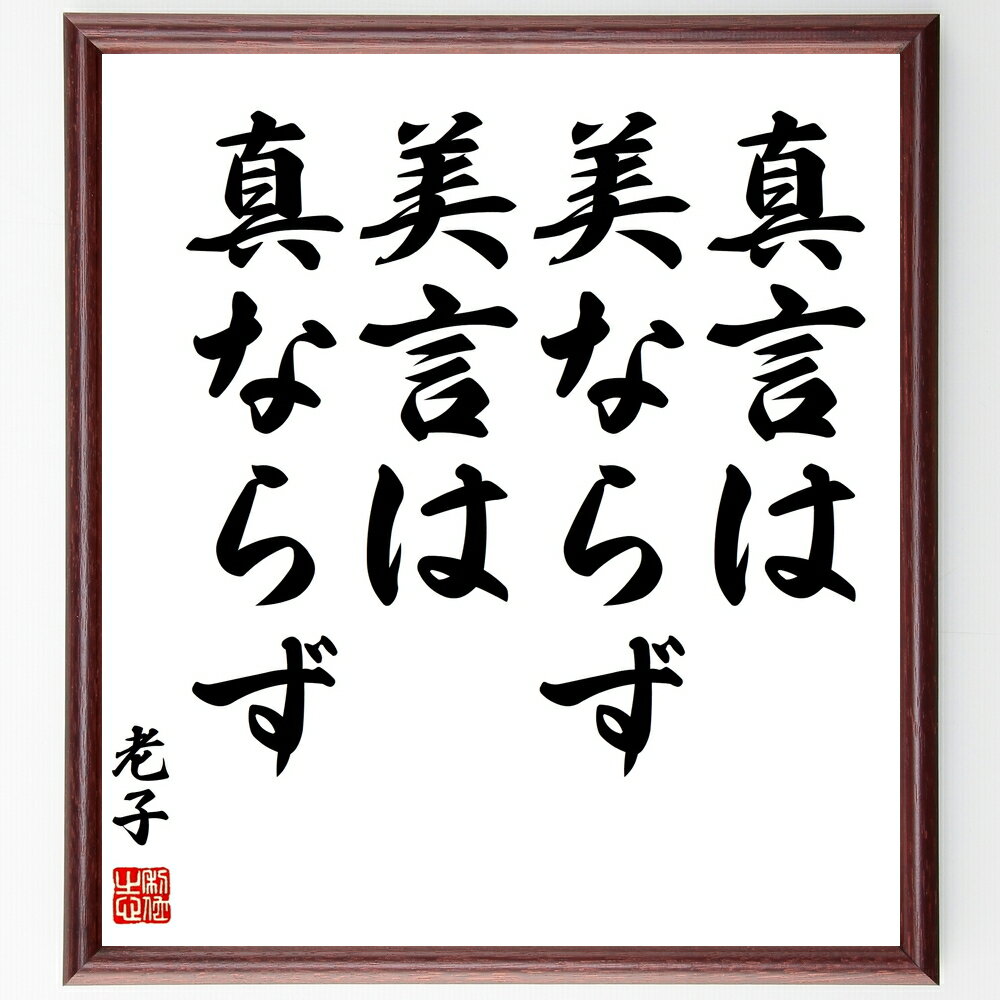 真言は
美ならず
美言は
真ならず
老子